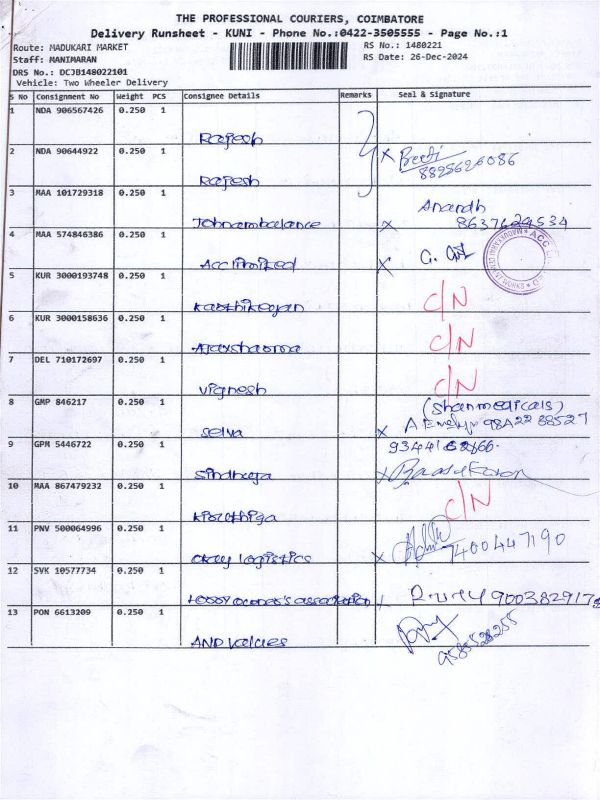 THE PROFESSIONAL COURIERS, COIMBATORE
Delivery Runsheet - KUNI - Phone No.:0422-3505555 - Page No.:1
Route: MADUKARI MARKET RS No.: 1480221
Staff: MANIMARAN RS Date: 26-Dec-2024
DRS No.: DCJB148022101
Vehicle: Two Wheeler Delivery
S No Consignment No Weight PCS Consignee Details Remarks Seal & Signature
1 NDA 906567426 0.250 1
Rajesh
2 NDA 90644922 0.250 1
8895626086
Rajesh
3 MAA 101729318 0.250 1 Anandh
Johnambalance x 8637629534
4 MAA 574846386 0.250 1
Acc limited x
5 KUR 3000193748 0.250 1 C/N
Karthikeyan
6 KUR 3000158636 0.250 1 C/N
Ajaysharma
7 DEL 710172697 0.250 1 C/N
Vignesh
8 GMP 846217 0.250 1 (Shanmedicals)
Selva x
9 GPM 5446722 0.250 1 9344162866.
Sindhuja x
10 MAA 867479232 0.250 1 C/N
Kiruthiga
11 PNV 500064996 0.250 1
Okay logistics x 7400447190
12 SVK 10577734 0.250 1
9003829178
13 PON 6613209 0.250 1
AND values